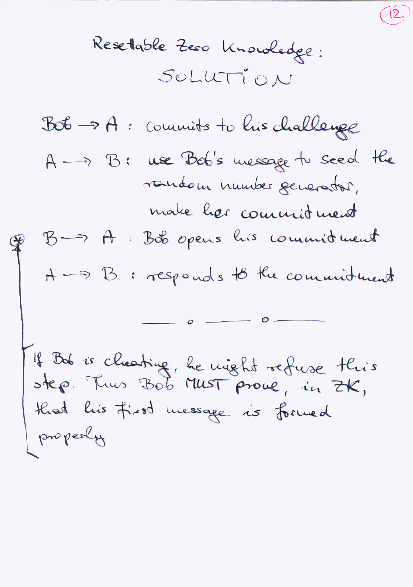 12.
Resettable Zero Knowledge:
SOLUTION
Bob → A : commits to his challenge
A → B : use Bob's message to seed the
random number generator,
make her commitment
⊛ B → A : Bob opens his commitment
A → B : responds to the commitment
If Bob is cheating, he might refuse this
step. Thus Bob MUST prove, in ZK,
that his first message is formed
properly